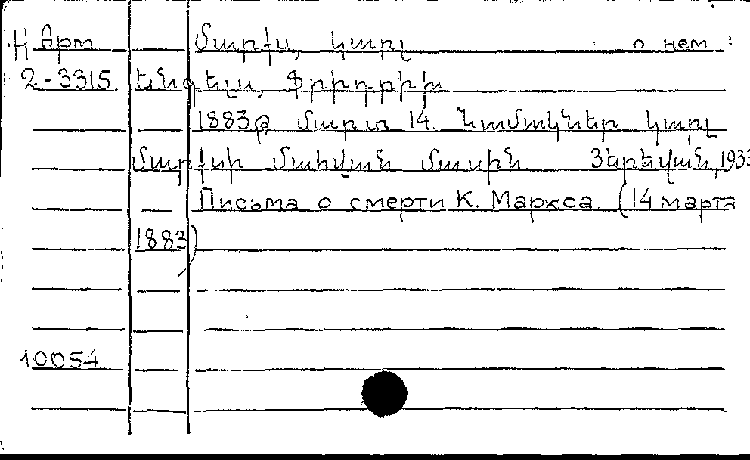 Арм Մարքս, Կարլ о нем
2-3315 Ենգելս, Ֆրիդրիխ
1883թ մարտ 14. Նամակներ Կարլ
Մարքսի մահվան մասին Յերեվան, 1933
Письма о смерти К. Маркса. (14 марта
1883)
10054